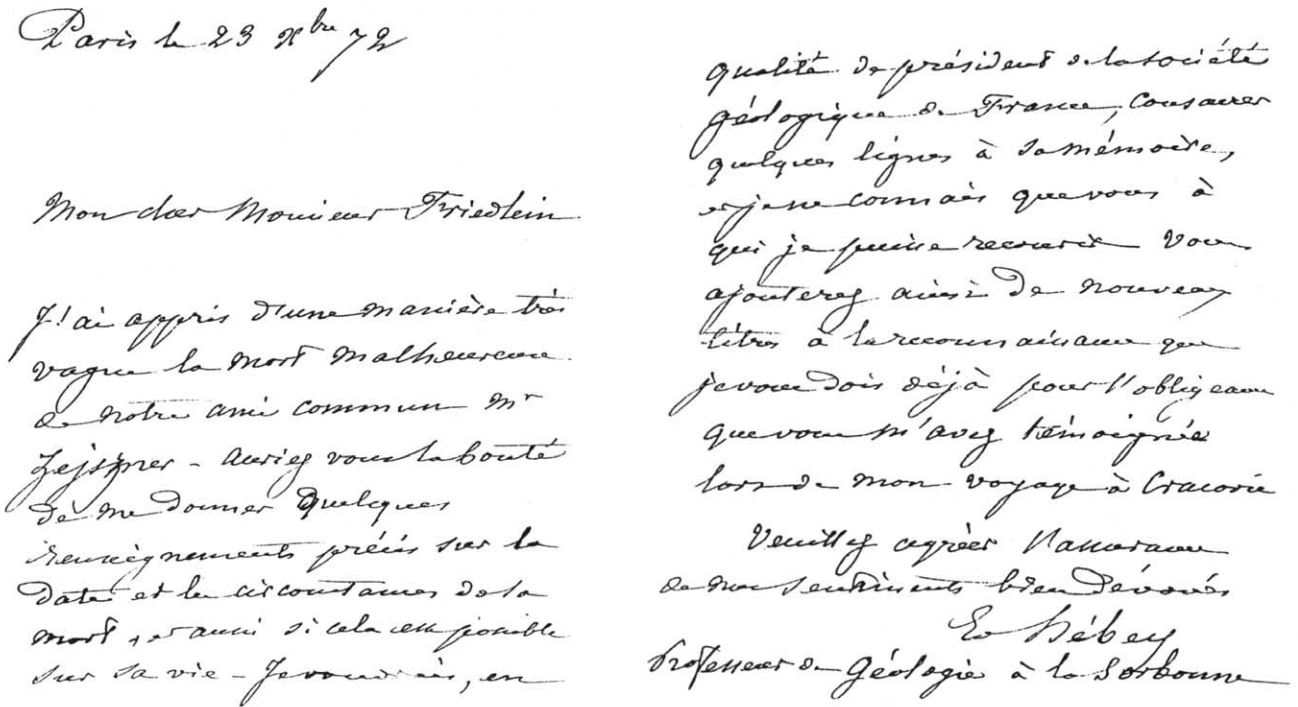 Paris le 23 Xbre 72
Mon cher Monsieur Friedlein
J'ai appris d'une manière très
vague la mort malheureuse
de notre ami commun Mr
Zejszner - auriez vous la bonté
de me donner quelques
renseignements précis sur la
date et les circonstances de sa
mort, et aussi si cela est possible
sur sa vie - Je voudrais, en
qualité de président de la société
géologique de France, consacrer
quelques lignes à sa mémoire,
et je ne connais que vous à
qui je puisse recourir Vous
ajouterez ainsi de nouveaux
titres à la reconnaissance que
je vous dois déjà pour l'obligeance
que vous m'avez témoignée
lors de mon voyage à Cracovie
Veuillez agréer l'assurance
de mes sentiments bien dévoués
Ed Hébert
Professeur de Géologie à la Sorbonne